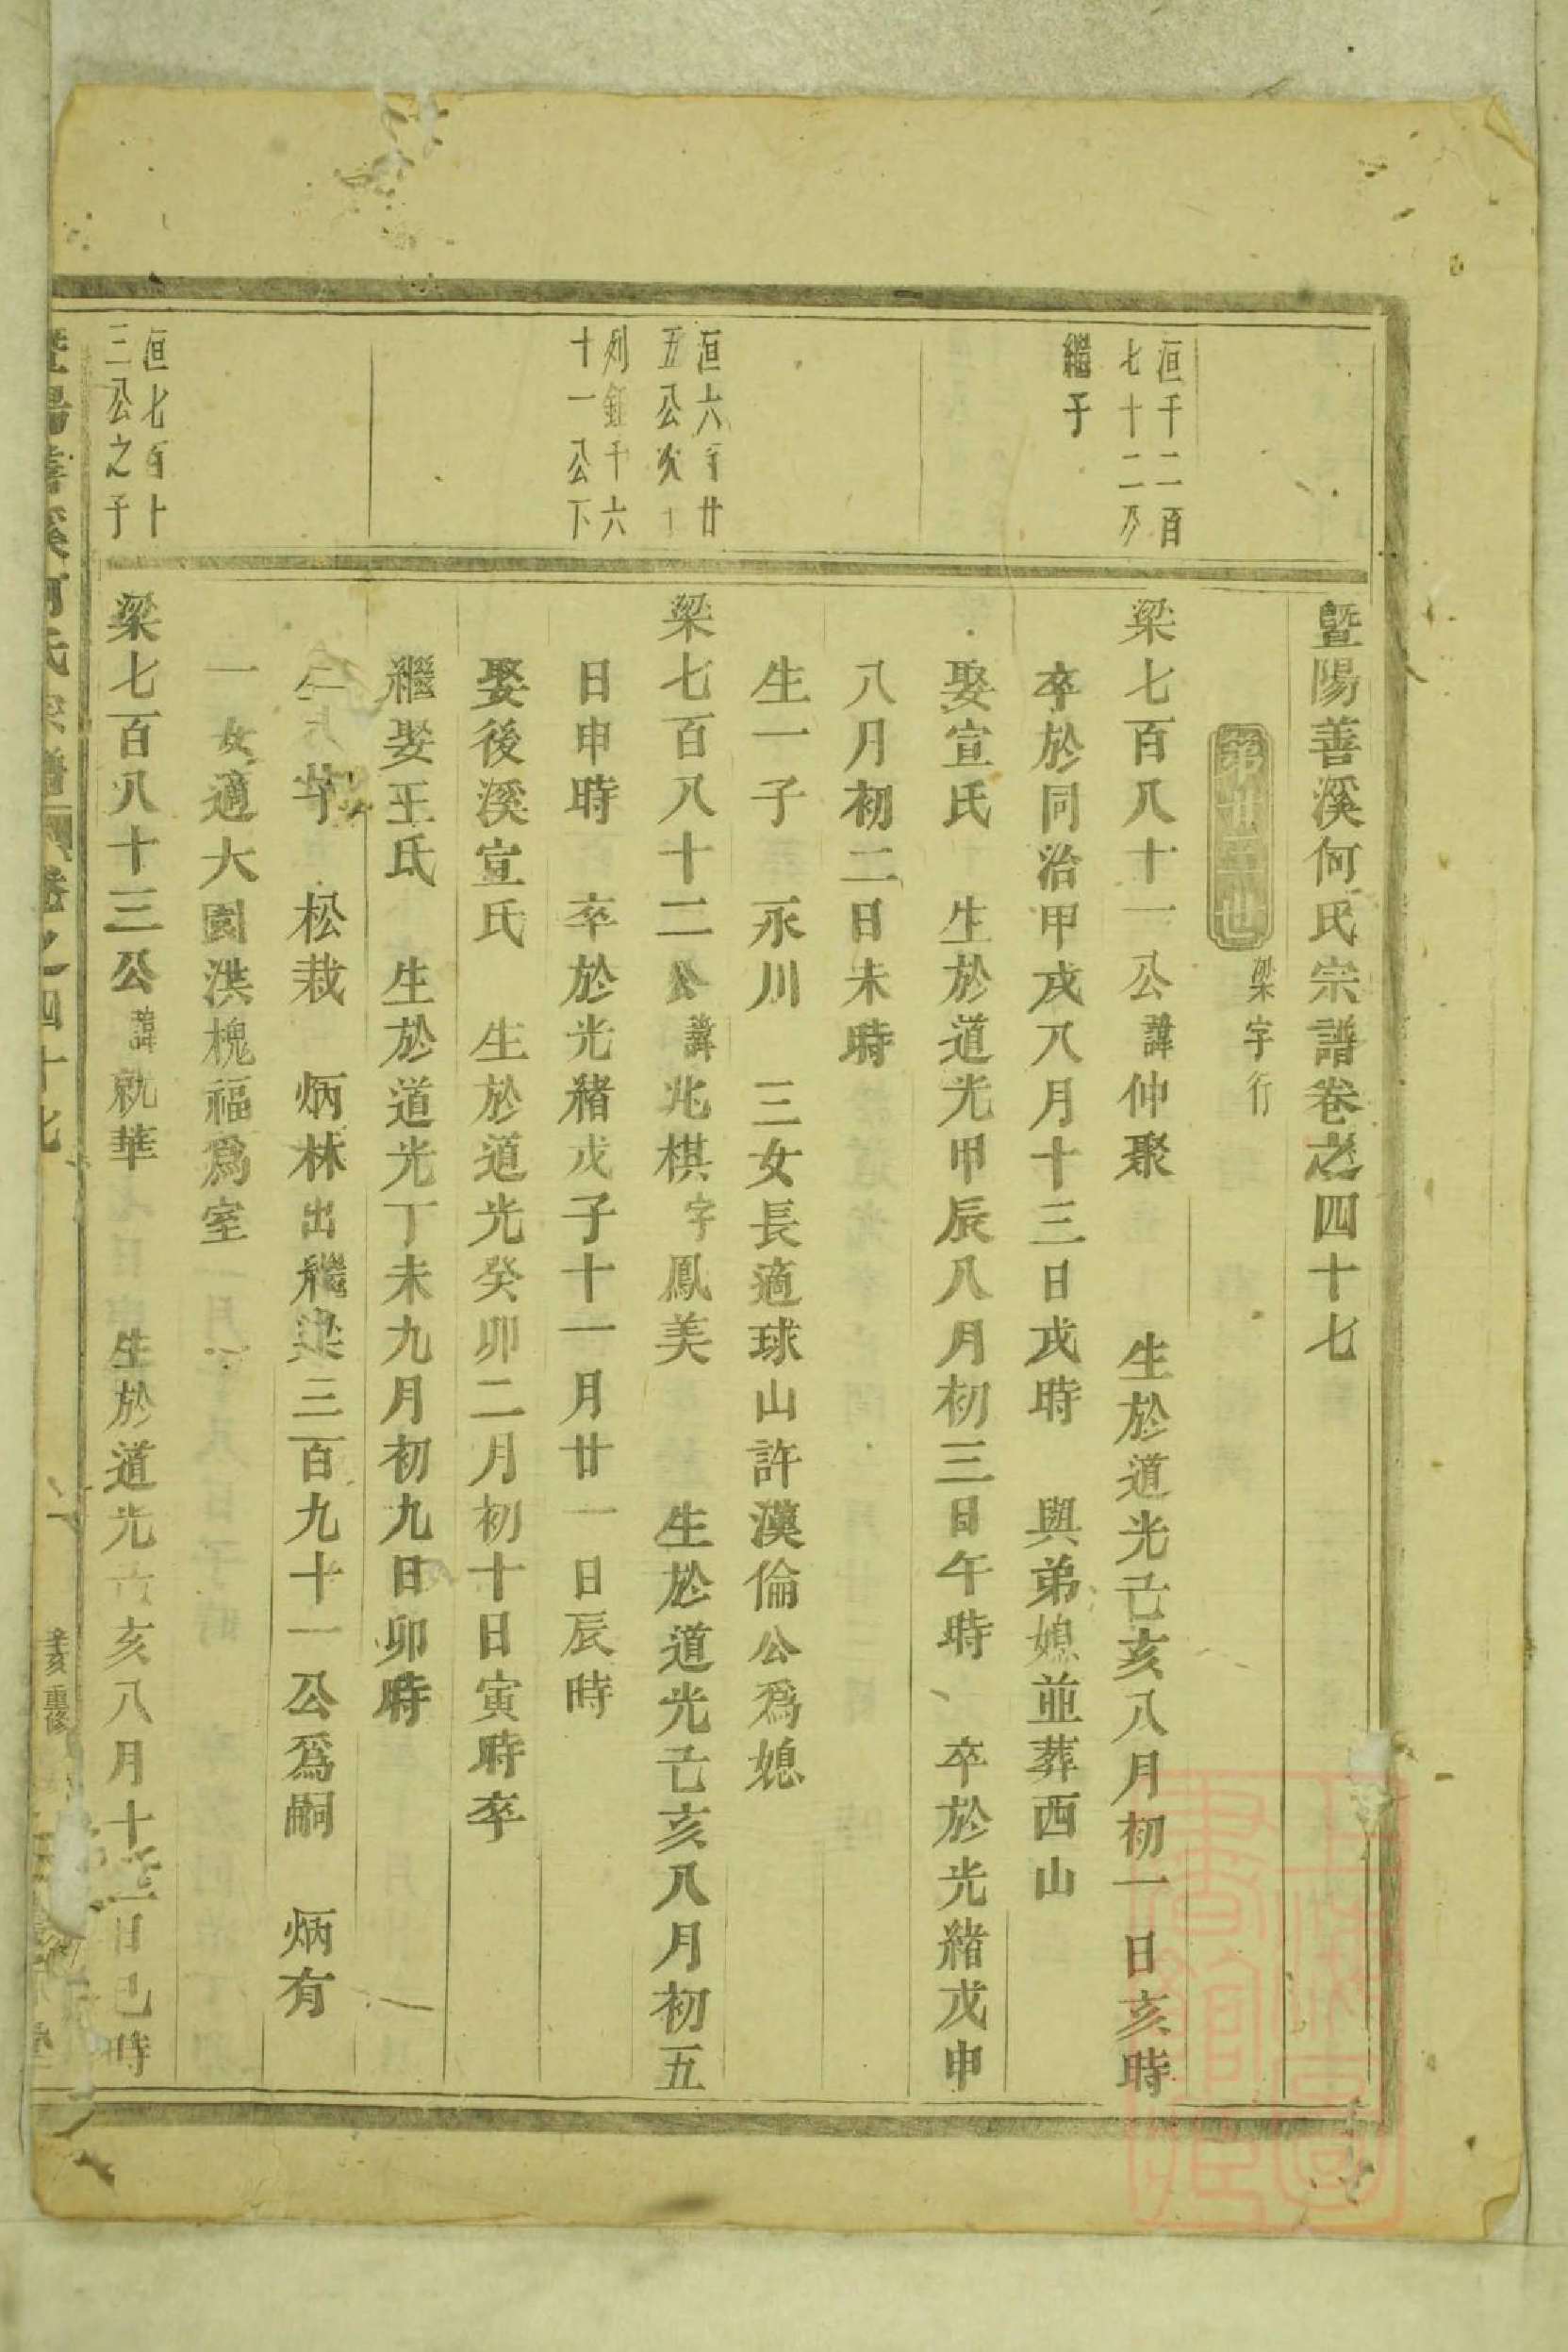 暨陽善溪何氏宗譜卷之四十七
第廿五世 梁字行
洹千二百
七十二公
繼子
梁七百八十一公諱仲聚 生於道光己亥八月初一日亥時
卒於同治甲戌八月十三日戌時 與弟媳並葬西山
娶宣氏 生於道光甲辰八月初三日午時 卒於光緒戊申
八月初二日未時
生一子 永川 三女長適球山許漢倫公爲媳
洹六百廿
五公次
列鉦千六
十一公下
梁七百八十二公諱兆棋字鳳美 生於道光己亥八月初五
日申時 卒於光緒戊子十一月廿一日辰時
娶後溪宣氏 生於道光癸卯二月初十日寅時卒
繼娶王氏 生於道光丁未九月初九日卯時
松栽 炳林出繼梁三百九十一公爲嗣 炳有
一女適大園洪槐福爲室
洹七百十
三公之子
梁七百八十三公諱就華 生於道光 亥八月十 日巳時
暨陽善溪何氏宗譜 卷之四十七 一 辛亥重修